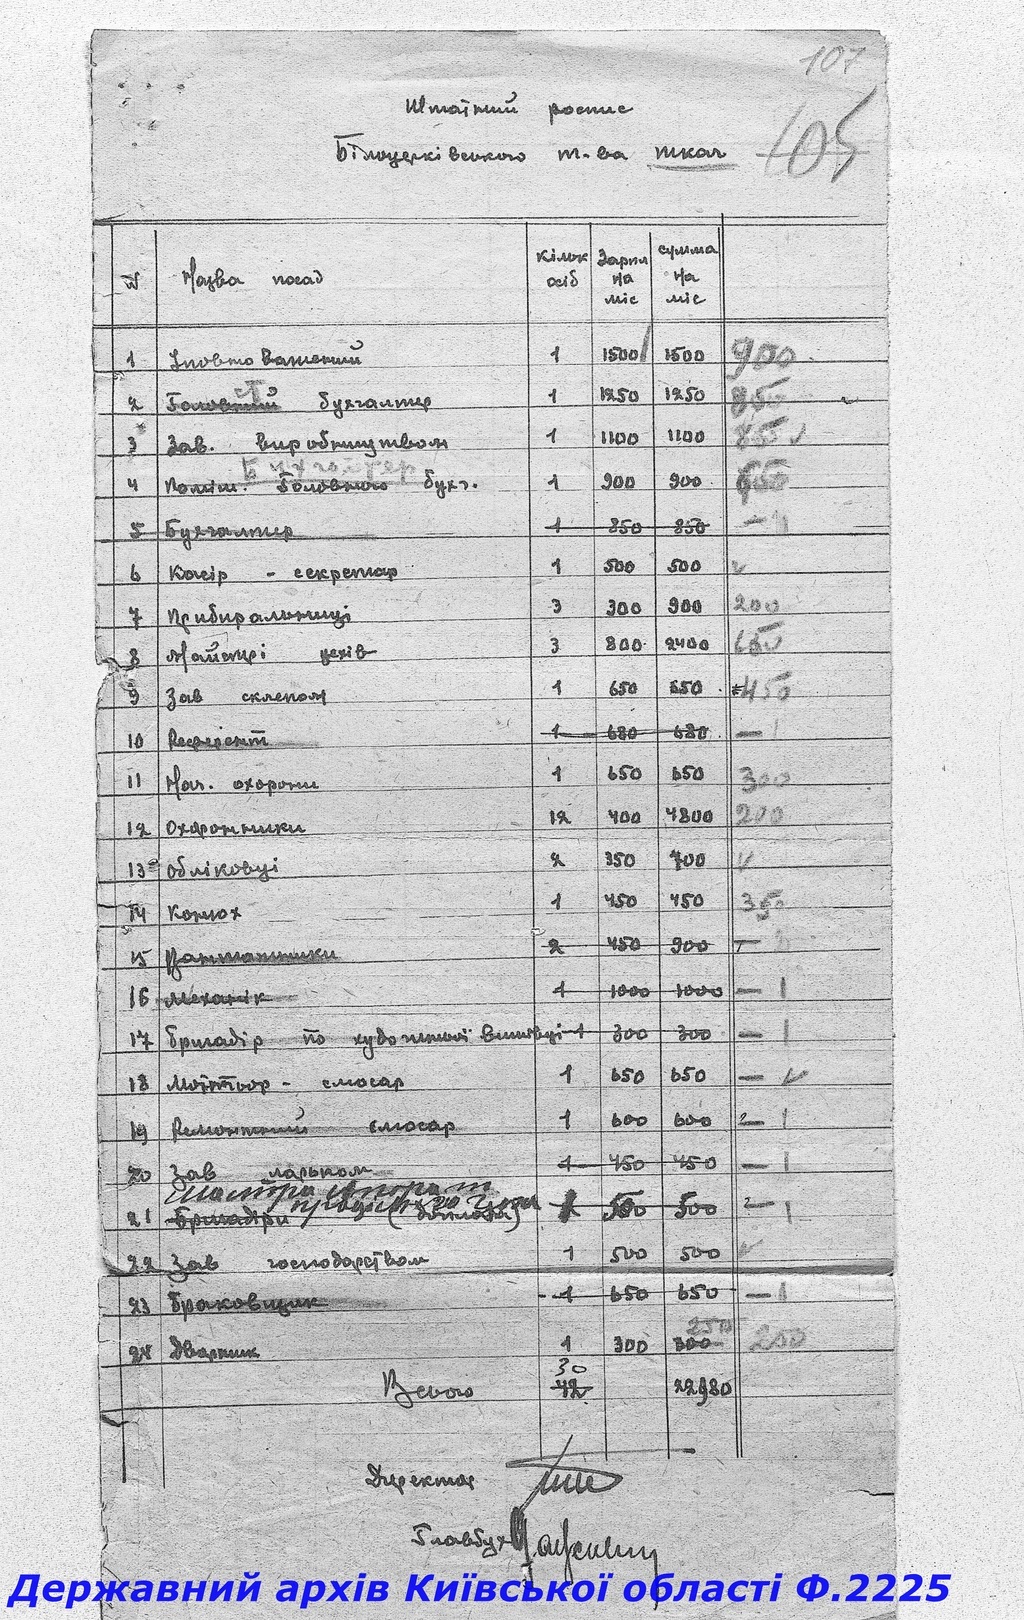 107
105
Штатний роспис
Білоцерківського т-ва ткач
№ Назва посад Кільк осіб Зарпл на міс сумма на міс
1 Уповноважений 1 1500 1500 900
2 Головний бухгалтер 1 1250 1250 850
3 Зав. виробництвом 1 1100 1100 855
Бухгалтер
4 Поміш. Головного бухг. 1 900 900 650
5 Бухгалтер 1 850 850 —
6 Касір - секретар 1 500 500
7 Прибиральниці 3 300 900 200
8 Майстрі цехів 3 800 2400 650
9 Зав складом 1 650 650 450
10 Референт 1 680 680 — 1
11 Нач. охорони 1 650 650 300
12 Охоронники 12 400 4800 200
13 Обліковці 2 350 700
14 Конюх 1 450 450 350
15 Вантажники 2 450 900 —
16 Механік 1 1000 1000 — 1
17 Бригадір по художній вишивці 1 300 300 — 1
18 Монтьор - слюсар 1 650 650 —
19 Ремонтний слюсар 1 600 600 — 1
20 Зав ларьком 1 450 450 — 1
21 Бригадіри (доплата) 1 500 500 1
22 Зав господарством 1 500 500
23 Браковщик 1 650 650 — 1
250
24 Дворник 1 300 300 250
30
Всього 42 22980
Директор
Главбух
Державний архів Київської області Ф.2225